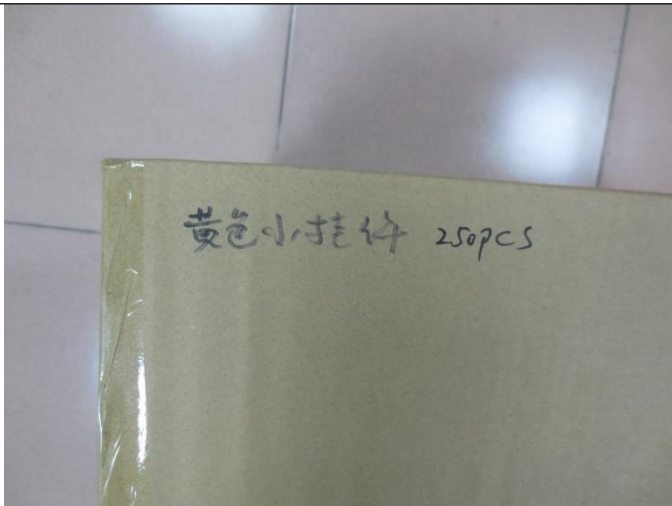 黄色小挂件 250pcs